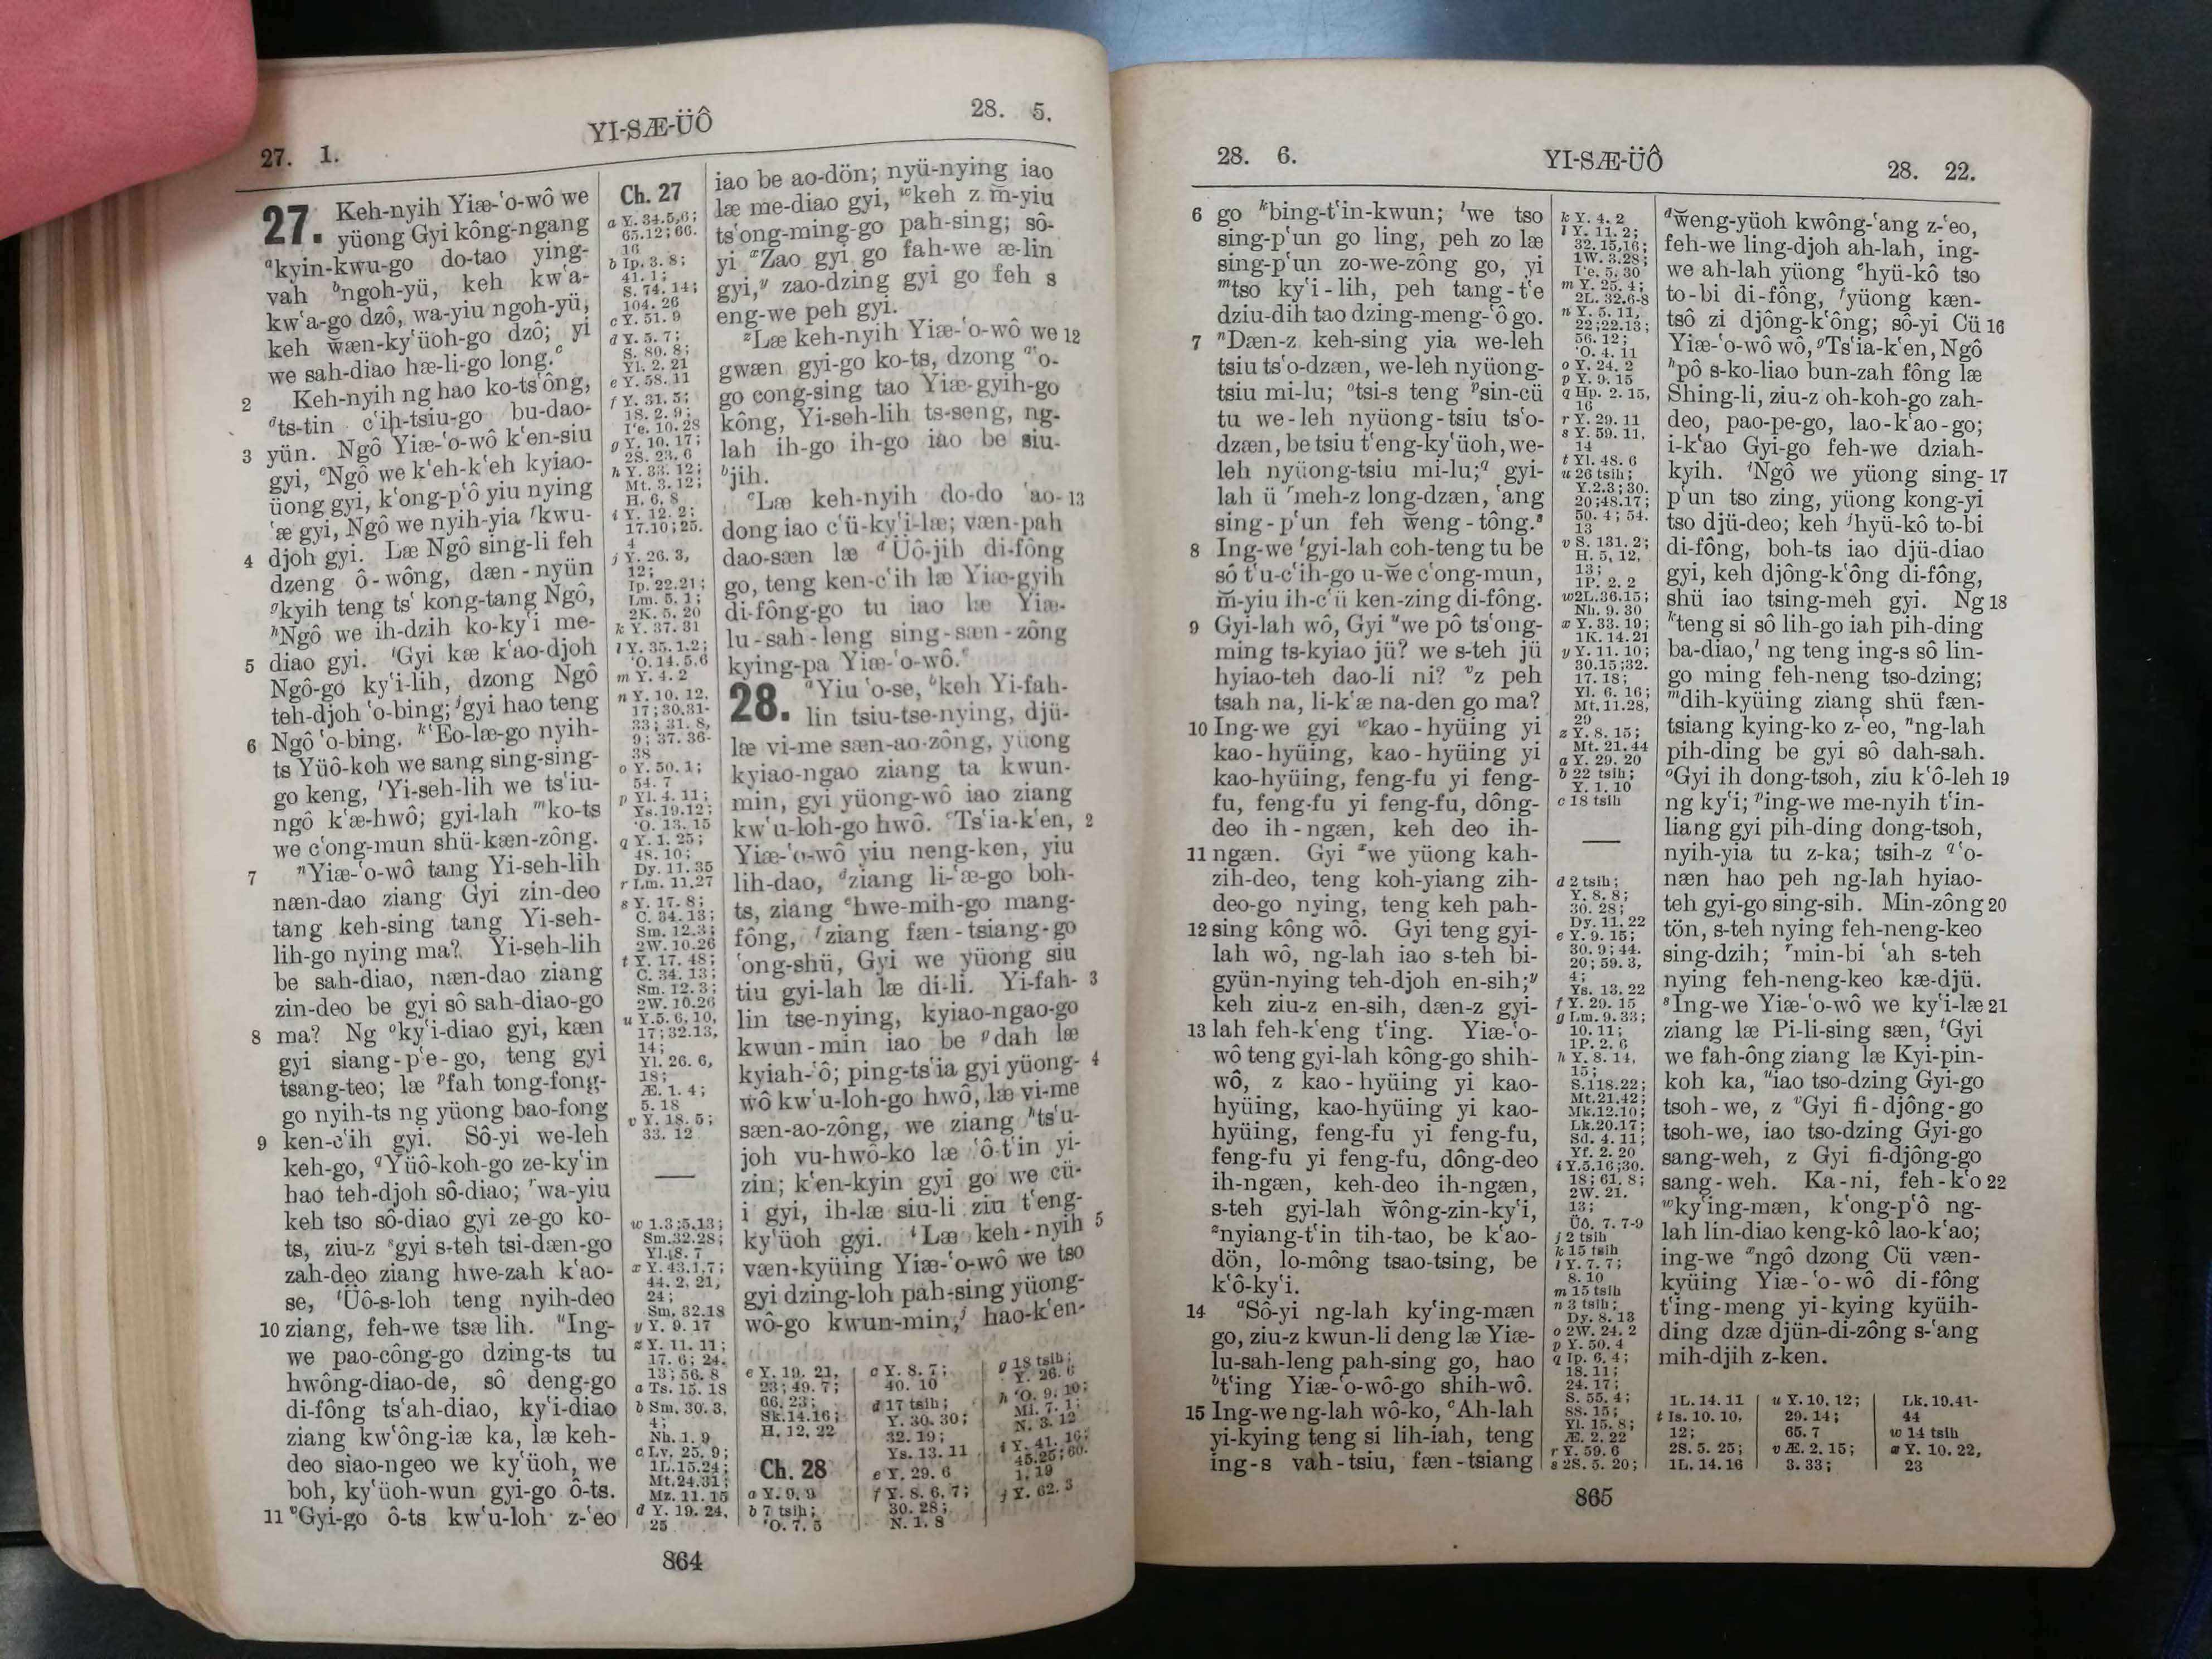 27. 1.
YI-SÆ-ÜÔ
28. 5.
27. Keh-nyih Yiæ-ʻo-wô we
yüong Gyi kông-ngang
ᵃkyin-kwu-go do-tao ying-
vah ᵇngoh-yü, keh kwʻa-
kwʻa-go dzô, wa-yiu ngoh-yü,
keh w̆æn-kyʻüoh-go dzô; yi
we sah-diao hæ-li-go long.ᶜ
2 Keh-nyih ng hao ko-tsʻông,
ᵈts-tin cʻih-tsiu-go bu-dao-
3 yün. Ngô Yiæ-ʻo-wô kʻen-siu
gyi, ᵉNgô we kʻeh-kʻeh kyiao-
üong gyi, kʻong-pʻô yiu nying
ʻæ gyi, Ngô we nyih-yia ᶠkwu-
4 djoh gyi. Læ Ngô sing-li feh
dzeng ô-wông, dæn-nyün
ᵍkyih teng tsʻ kong-tang Ngô,
ʰNgô we ih-dzih ko-kyʻi me-
5 diao gyi. ⁱGyi kæ kʻao-djoh
Ngô-go kyʻi-lih, dzong Ngô
teh-djoh ʻo-bing; ʲgyi hao teng
6 Ngô ʻo-bing. ᵏʻEo-læ-go nyih-
ts Yüô-koh we sang sing-sing-
go keng, ˡYi-seh-lih we tsʻiu-
ngô kʻæ-hwô; gyi-lah ᵐko-ts
we cʻong-mun shü-kæn-zông.
7 ⁿYiæ-ʻo-wô tang Yi-seh-lih
næn-dao ziang Gyi zin-deo
tang keh-sing tang Yi-seh-
lih-go nying ma? Yi-seh-lih
be sah-diao, næn-dao ziang
zin-deo be gyi sô sah-diao-go
8 ma? Ng ᵒkyʻi-diao gyi, kæn
gyi siang-pʻe-go, teng gyi
tsang-teo; læ ᵖfah tong-fong-
go nyih-ts ng yüong bao-fong
9 ken-cʻih gyi. Sô-yi we-leh
keh-go, ᑫYüô-koh-go ze-kyʻin
hao teh-djoh sô-diao; ʳwa-yiu
keh tso sô-diao gyi ze-go ko-
ts, ziu-z ˢgyi s-teh tsi-dæn-go
zah-deo ziang hwe-zah kʻao-
se, ᵗÜô-s-loh teng nyih-deo
10 ziang, feh-we tsæ lih. ᵘIng-
we pao-công-go dzing-ts tu
hwông-diao-de, sô deng-go
di-fông tsʻah-diao, kyʻi-diao
ziang kwʻông-iæ ka, læ keh-
deo siao-ngeo we kyʻüoh, we
boh, kyʻüoh-wun gyi-go ô-ts.
11 ᵛGyi-go ô-ts kwʻu-loh z-ʻeo
Ch. 27
a Y. 34.5,6;
65.12; 66.
16
b Ip. 3. 8;
41. 1;
S. 74. 14;
104. 26
c Y. 51. 9
d Y. 5. 7;
S. 80. 8;
Yl. 2. 21
e Y. 58. 11
f Y. 31. 5;
1S. 2. 9;
Iʻe. 10. 28
g Y. 10. 17;
2S. 23. 6
h Y. 33. 12;
Mt. 3. 12;
H. 6. 8
i Y. 12. 2;
17.10; 25.
4
j Y. 26. 3,
12;
Ip. 22.21;
Lm. 5. 1;
2K. 5. 20
k Y. 37. 31
l Y. 35. 1.2;
ʻO. 14. 5,6
m Y. 4. 2
n Y. 10. 12,
17; 30.31-
33; 31. 8,
9; 37. 36-
38
o Y. 50. 1;
54. 7
p Yl. 4. 11;
Ys. 19.12;
ʻO. 13. 15
q Y. 1. 25;
48. 10;
Dy. 11. 35
r Lm. 11.27
s Y. 17. 8;
C. 34. 13;
Sm. 12.3;
2W. 10.26
t Y. 17. 48;
C. 34. 13;
Sm. 12. 3;
2W. 10.26
u Y. 5. 6, 10,
17; 32.13,
14;
Yl. 26. 6,
18;
Æ. 1. 4;
5. 18
v Y. 18. 5;
33. 12
w 1.3;5.13;
Sm.32.28;
Yl.18. 7
x Y. 43.1,7;
44. 2, 21,
24;
Sm. 32.18
y Y. 9. 17
z Y. 11. 11;
17. 6; 24.
13; 56. 8
a Ts. 15. 18
b Sm. 30. 3,
4;
Nh. 1. 9
c Lv. 25. 9;
1L.15.24;
Mt.24.31;
Mz. 11. 15
d Y. 19. 24,
25
iao be ao-dön; nyü-nying iao
læ me-diao gyi, ʷkeh z m̆-yiu
tsʻong-ming-go pah-sing; sô-
yi ˣZao gyi go fah-we æ-lin
gyi,ʸ zao-dzing gyi go feh s
eng-we peh gyi.
ᶻLæ keh-nyih Yiæ-ʻo-wô we 12
gwæn gyi-go ko-ts, dzong ᵃʻo-
go cong-sing tao Yiæ-gyih-go
kông, Yi-seh-lih ts-seng, ng-
lah ih-go ih-go iao be siu-
ᵇjih.
ᶜLæ keh-nyih do-do ʻao- 13
dong iao cʻü-kyʻi-læ; væn-pah
dao-sæn læ ᵈÜô-jih di-fông
go, teng ken-cʻih læ Yiæ-gyih
di-fông-go tu iao læ Yiæ-
lu-sah-leng sing-sæn-zông
kying-pa Yiæ-ʻo-wô.ᵉ
28. ᵃYiu ʻo-se, ᵇkeh Yi-fah-
lin tsiu-tse-nying, djü-
læ vi-me sæn-ao-zông, yüong
kyiao-ngao ziang ta kwun-
min, gyi yüong-wô iao ziang
kwʻu-loh-go hwô. ᶜTsʻia-kʻen, 2
Yiæ-ʻo-wô yiu neng-ken, yiu
lih-dao, ᵈziang li-ʻæ-go boh-
ts, ziang ᵉhwe-mih-go mang-
fông, ᶠziang fæn-tsiang-go
ʻong-shü, Gyi we yüong siu
tiu gyi-lah læ di-li. Yi-fah- 3
lin tse-nying, kyiao-ngao-go
kwun-min iao be ᵍdah læ
kyiah-ʻô; ping-tsʻia gyi yüong- 4
wô kwʻu-loh-go hwô, læ vi-me
sæn-ao-zông, we ziang ʰtsʻu-
joh vu-hwô-ko læ ʻô-tʻin yi-
zin; kʻen-kyin gyi go we cü-
i gyi, ih-læ siu-li ziu tʻeng-
kyʻüoh gyi. ⁱLæ keh-nyih 5
væn-kyüing Yiæ-ʻo-wô we tso
gyi dzing-loh pah-sing yüong-
wô-go kwun-min,ʲ hao-kʻen-
e Y. 19. 21,
23; 49. 7;
66. 23;
Sk.14.16;
H. 12. 22
Ch. 28
a Y. 9. 9
b 7 tsih;
ʻO. 7. 5
c Y. 8. 7;
40. 10
d 17 tsih;
Y. 30. 30;
32. 19;
Ys. 13. 11
e Y. 29. 6
f Y. 8. 6, 7;
30. 28;
N. 1. 8
g 18 tsih;
Y. 26. 6
h ʻO. 9. 10;
Mi. 7. 1;
N. 3. 12
i Y. 41. 16;
45.25; 60.
1, 19
j Y. 62. 3
864
28. 6.
YI-SÆ-ÜÔ
28. 22.
6 go ᵏbing-tʻin-kwun; ˡwe tso
sing-pʻun go ling, peh zo læ
sing-pʻun zo-we-zông go, yi
ᵐtso kyʻi-lih, peh tang-tʻe
dziu-dih tao dzing-meng-ʻô go.
7 ⁿDæn-z keh-sing yia we-leh
tsiu tsʻo-dzæn, we-leh nyüong-
tsiu mi-lu; ᵒtsi-s teng ᵖsin-cü
tu we-leh nyüong-tsiu tsʻo-
dzæn, be tsiu tʻeng-kyʻüoh, we-
leh nyüong-tsiu mi-lu;ᑫ gyi-
lah ü ʳmeh-z long-dzæn, ʻang
sing-pʻun feh w̆eng-tông.ˢ
8 Ing-we ᵗgyi-lah coh-teng tu be
sô tʻu-cʻih-go u-w̆e cʻong-mun,
m̆-yiu ih-cʻü ken-zing di-fông.
9 Gyi-lah wô, Gyi ᵘwe pô tsʻong-
ming ts-kyiao jü? we s-teh jü
hyiao-teh dao-li ni? ᵛz peh
tsah na, li-kʻæ na-den go ma?
10 Ing-we gyi ʷkao-hyüing yi
kao-hyüing, kao-hyüing yi
kao-hyüing, feng-fu yi feng-
fu, feng-fu yi feng-fu, dông-
deo ih-ngæn, keh deo ih-
11 ngæn. Gyi ˣwe yüong kah-
zih-deo, teng koh-yiang zih-
deo-go nying, teng keh pah-
12 sing kông wô. Gyi teng gyi-
lah wô, ng-lah iao s-teh bi-
gyün-nying teh-djoh en-sih;ʸ
keh ziu-z en-sih, dæn-z gyi-
13 lah feh-kʻeng tʻing. Yiæ-ʻo-
wô teng gyi-lah kông-go shih-
wô, z kao-hyüing yi kao-
hyüing, kao-hyüing yi kao-
hyüing, feng-fu yi feng-fu,
feng-fu yi feng-fu, dông-deo
ih-ngæn, keh-deo ih-ngæn,
s-teh gyi-lah w̆ông-zin-kyʻi,
ᶻnyiang-tʻin tih-tao, be kʻao-
dön, lo-mông tsao-tsing, be
kʻô-kyʻi.
14 ᵃSô-yi ng-lah kyʻing-mæn
go, ziu-z kwun-li deng læ Yiæ-
lu-sah-leng pah-sing go, hao
ᵇtʻing Yiæ-ʻo-wô-go shih-wô.
15 Ing-we ng-lah wô-ko, ᶜAh-lah
yi-kying teng si lih-iah, teng
ing-s vah-tsiu, fæn-tsiang
k Y. 4. 2
l Y. 11. 2;
32. 15,16;
1W. 3.28;
Iʻe. 5. 30
m Y. 25. 4;
2L. 32.6-8
n Y. 5. 11,
22;22.13;
56. 12;
ʻO. 4. 11
o Y. 24. 2
p Y. 9. 15
q Hp. 2. 15,
16
r Y. 29. 11
s Y. 59. 11,
14
t Yl. 48. 6
u 26 tsih;
Y.2.3; 30.
20;48.17;
50. 4; 54.
13
v S. 131. 2;
H. 5. 12,
13;
1P. 2. 2
w2L.36.15;
Nh. 9. 30
x Y. 33. 19;
1K. 14.21
y Y. 11. 10;
30.15;32.
17. 18;
Yl. 6. 16;
Mt. 11.28,
29
z Y. 8. 15;
Mt. 21. 44
a Y. 29. 20
b 22 tsih;
Y. 1. 10
c 18 tsih
d 2 tsih;
Y. 8. 8;
30. 28;
Dy. 11. 22
e Y. 9. 15;
30. 9; 44.
20; 59. 3,
4;
Ys. 13. 22
f Y. 29. 15
g Lm. 9. 33;
10. 11;
1P. 2. 6
h Y. 8. 14,
15;
S.118.22;
Mt.21.42;
Mk.12.10;
Lk.20.17;
Sd. 4. 11;
Yf. 2. 20
i Y.5.16;30.
18; 61. 8;
2W. 21.
13;
Üô. 7. 7-9
j 2 tsih
k 15 tsih
l Y. 7. 7;
8. 10
m 15 tsih
n 3 tsih;
Dy. 8. 13
o 2W. 24. 2
p Y. 50. 4
q Ip. 6. 4;
18. 11;
24. 17;
S. 55. 4;
88. 15;
Yl. 15. 8;
Æ. 2. 22
r Y. 59. 6
s 2S. 5. 20;
ᵈw̆eng-yüoh kwông-ʻang z-ʻeo,
feh-we ling-djoh ah-lah, ing-
we ah-lah yüong ᵉhyü-kô tso
to-bi di-fông, ᶠyüong kæn-
tsô zi djông-kʻông; sô-yi Cü 16
Yiæ-ʻo-wô wô, ᵍTsʻia-kʻen, Ngô
ʰpô s-ko-liao bun-zah fông læ
Shing-li, ziu-z oh-koh-go zah-
deo, pao-pe-go, lao-kʻao-go;
i-kʻao Gyi-go feh-we dziah-
kyih. ⁱNgô we yüong sing- 17
pʻun tso zing, yüong kong-yi
tso djü-deo; keh ʲhyü-kô to-bi
di-fông, boh-ts iao djü-diao
gyi, keh djông-kʻông di-fông,
shü iao tsing-meh gyi. Ng 18
ᵏteng si sô lih-go iah pih-ding
ba-diao,ˡ ng teng ing-s sô lin-
go ming feh-neng tso-dzing;
ᵐdih-kyüing ziang shü fæn-
tsiang kying-ko z-ʻeo, ⁿng-lah
pih-ding be gyi sô dah-sah.
ᵒGyi ih dong-tsoh, ziu kʻô-leh 19
ng kyʻi; ᵖing-we me-nyih tʻin-
liang gyi pih-ding dong-tsoh,
nyih-yia tu z-ka; tsih-z ᑫʻo-
næn hao peh ng-lah hyiao-
teh gyi-go sing-sih. Min-zông 20
tön, s-teh nying feh-neng-keo
sing-dzih; ʳmin-bi ʻah s-teh
nying feh-neng-keo kæ-djü.
ˢIng-we Yiæ-ʻo-wô we kyʻi-læ 21
ziang læ Pi-li-sing sæn, ᵗGyi
we fah-ông ziang læ Kyi-pin-
koh ka, ᵘiao tso-dzing Gyi-go
tsoh-we, z ᵛGyi fi-djông-go
tsoh-we, iao tso-dzing Gyi-go
sang-weh, z Gyi fi-djông-go
sang-weh. Ka-ni, feh-kʻo 22
ʷkyʻing-mæn, kʻong-pʻô ng-
lah lin-diao keng-kô lao-kʻao;
ing-we ˣngô dzong Cü væn-
kyüing Yiæ-ʻo-wô di-fông
tʻing-meng yi-kying kyüih-
ding dzæ djün-di-zông s-ʻang
mih-djih z-ken.
1L. 14. 11
t Is. 10. 10,
12;
2S. 5. 25;
1L. 14. 16
u Y. 10. 12;
29. 14;
65. 7
v Æ. 2. 15;
3. 33;
Lk. 19.41-
44
w 14 tsih
x Y. 10. 22,
23
865